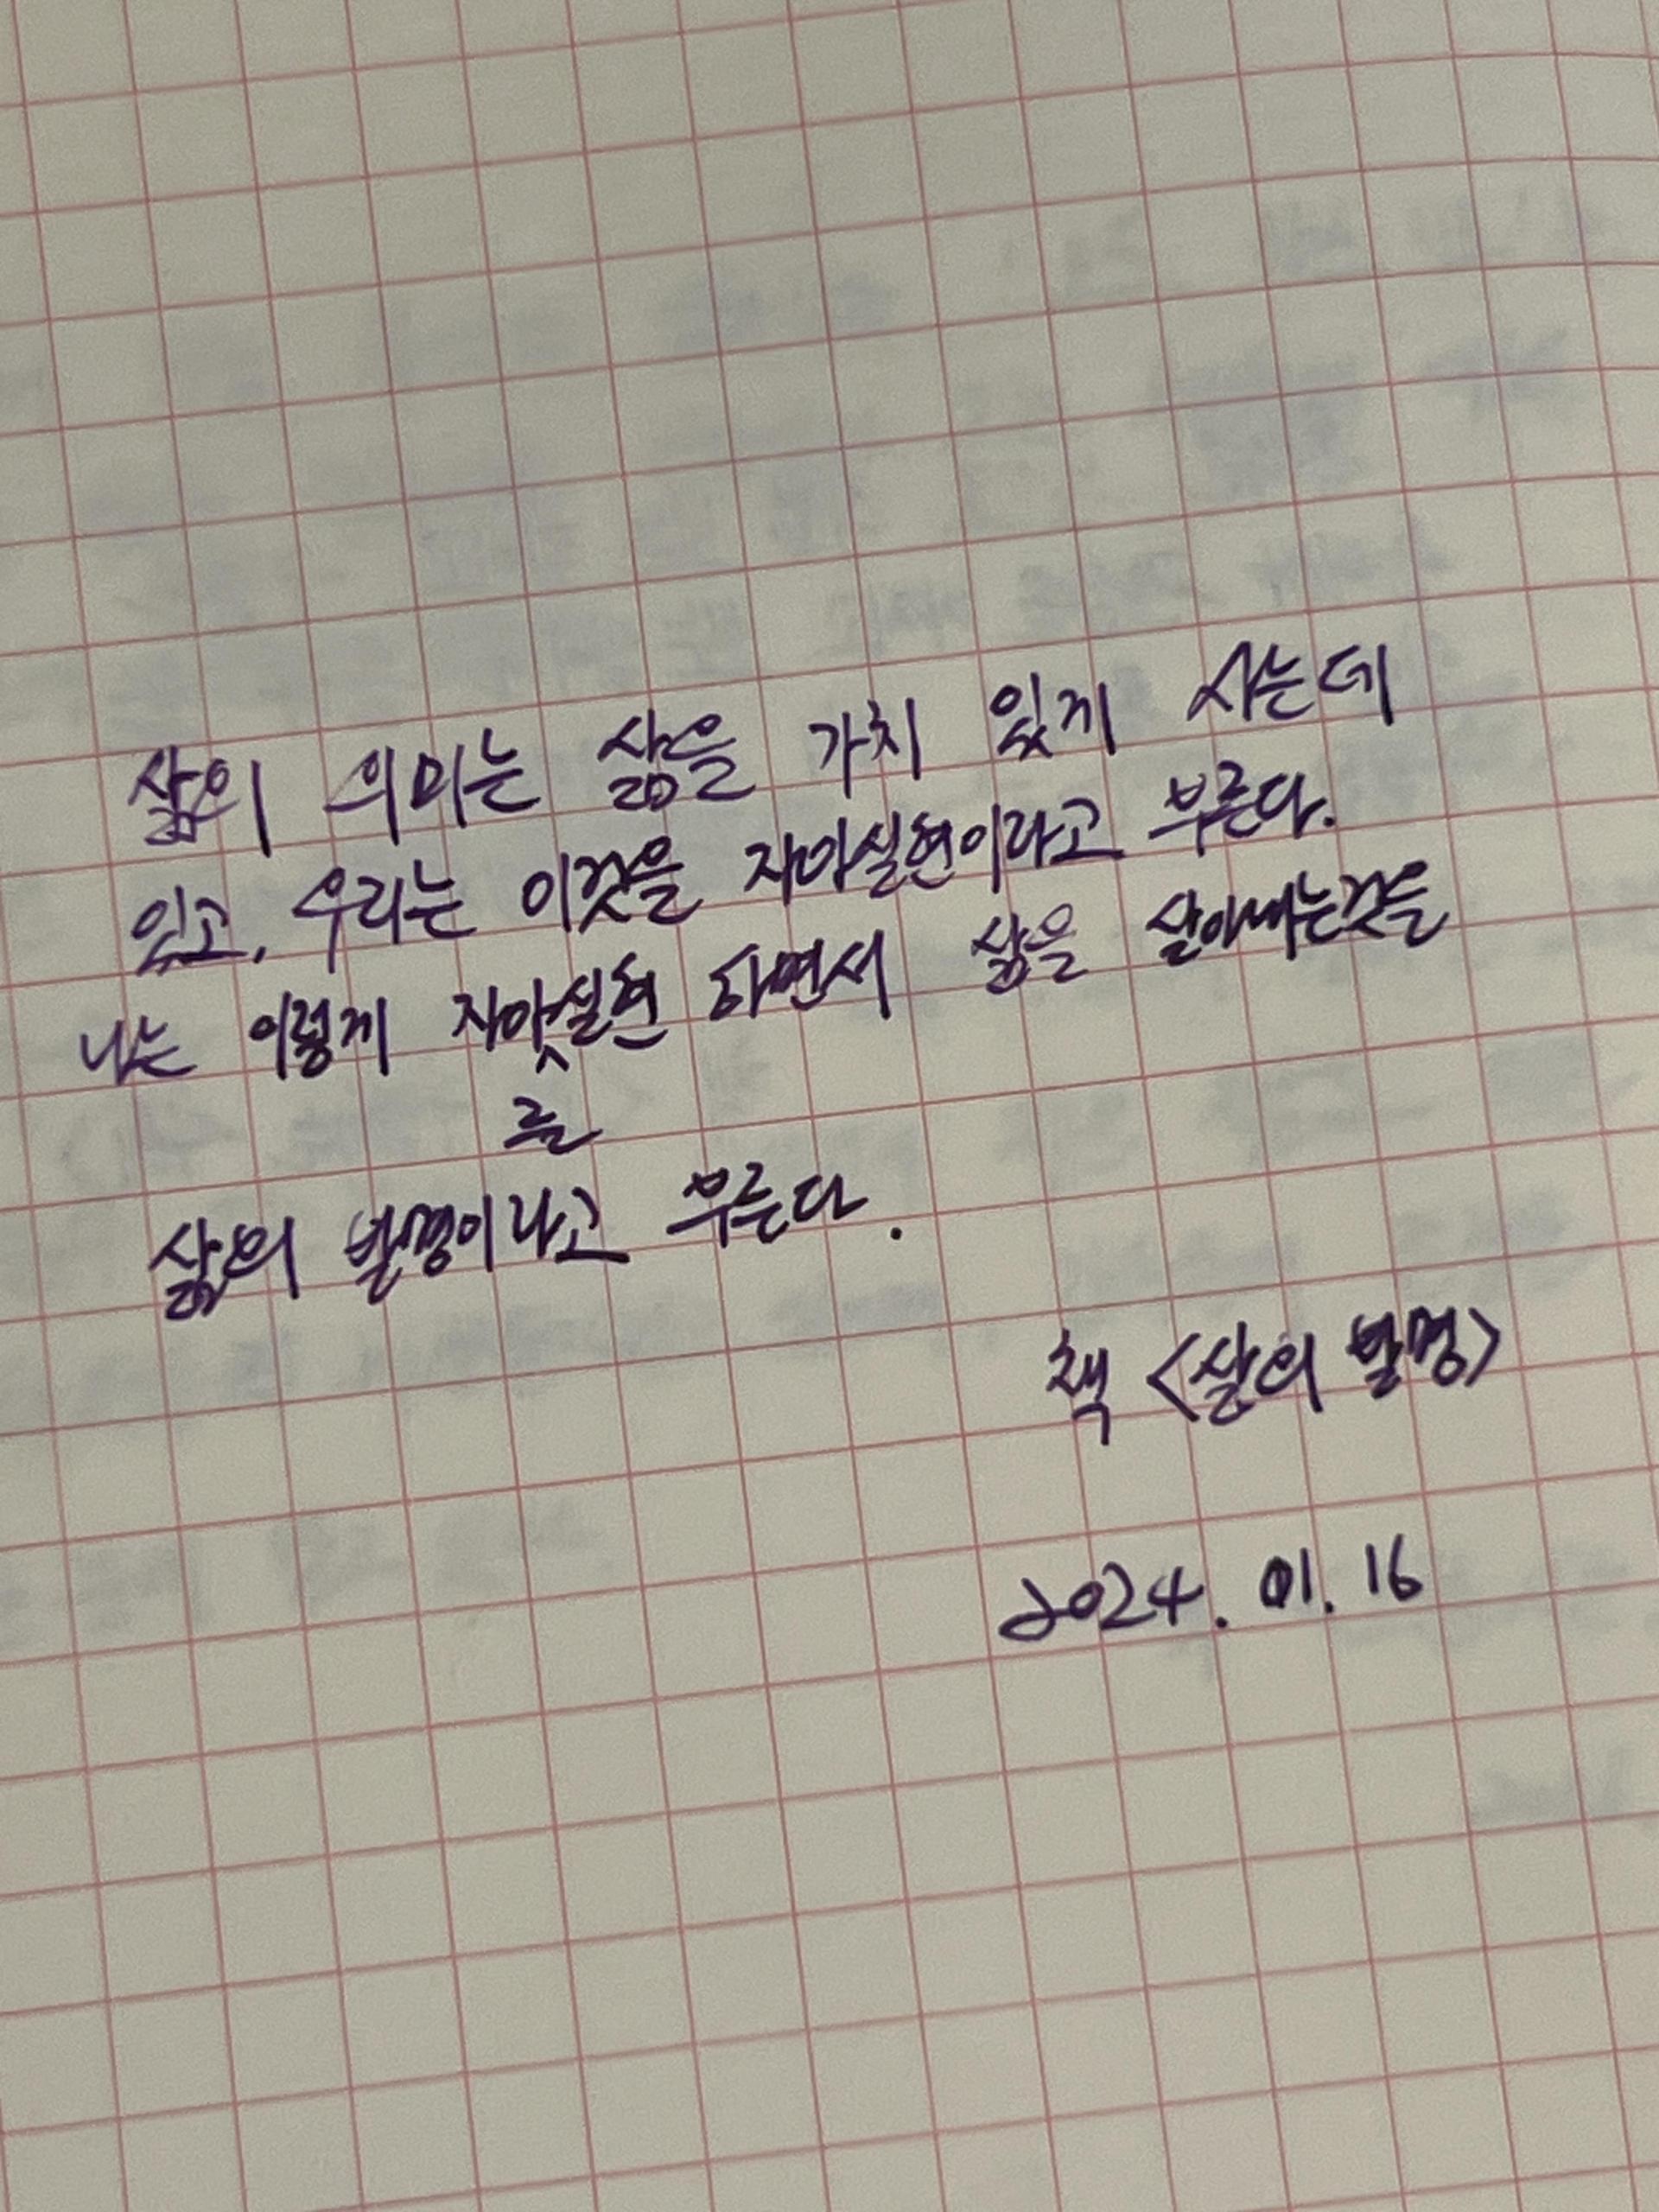 삶의 의미는 삶을 가치 있게 사는데
있고, 우리는 이것을 자아실현이라고 부른다.
나는 이렇게 자아실현 하면서 삶을 살아내는것을
를
삶의 발명이라고 부른다.
책 <삶의 발명>
2024. 01. 16